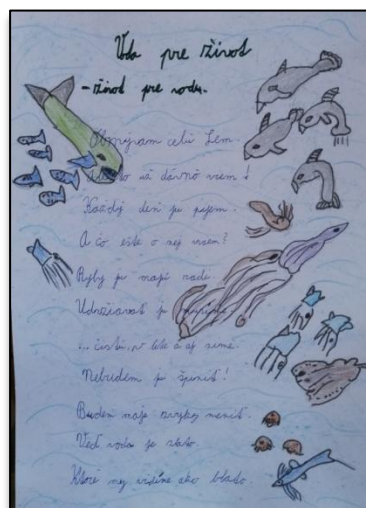 Voda pre život
- život pre vodu.
Obmývam celú Zem.
to už dávno viem!
Každý deň ju pijem.
A čo ešte o nej viem?
Ryby ju majú rady
Udržiavať ju
... čistú, v lete a aj v zime.
Nebudem ju špiniť!
Budem moje zvyky meniť.
Veď voda je zlato.
Ktoré nej ako blato.